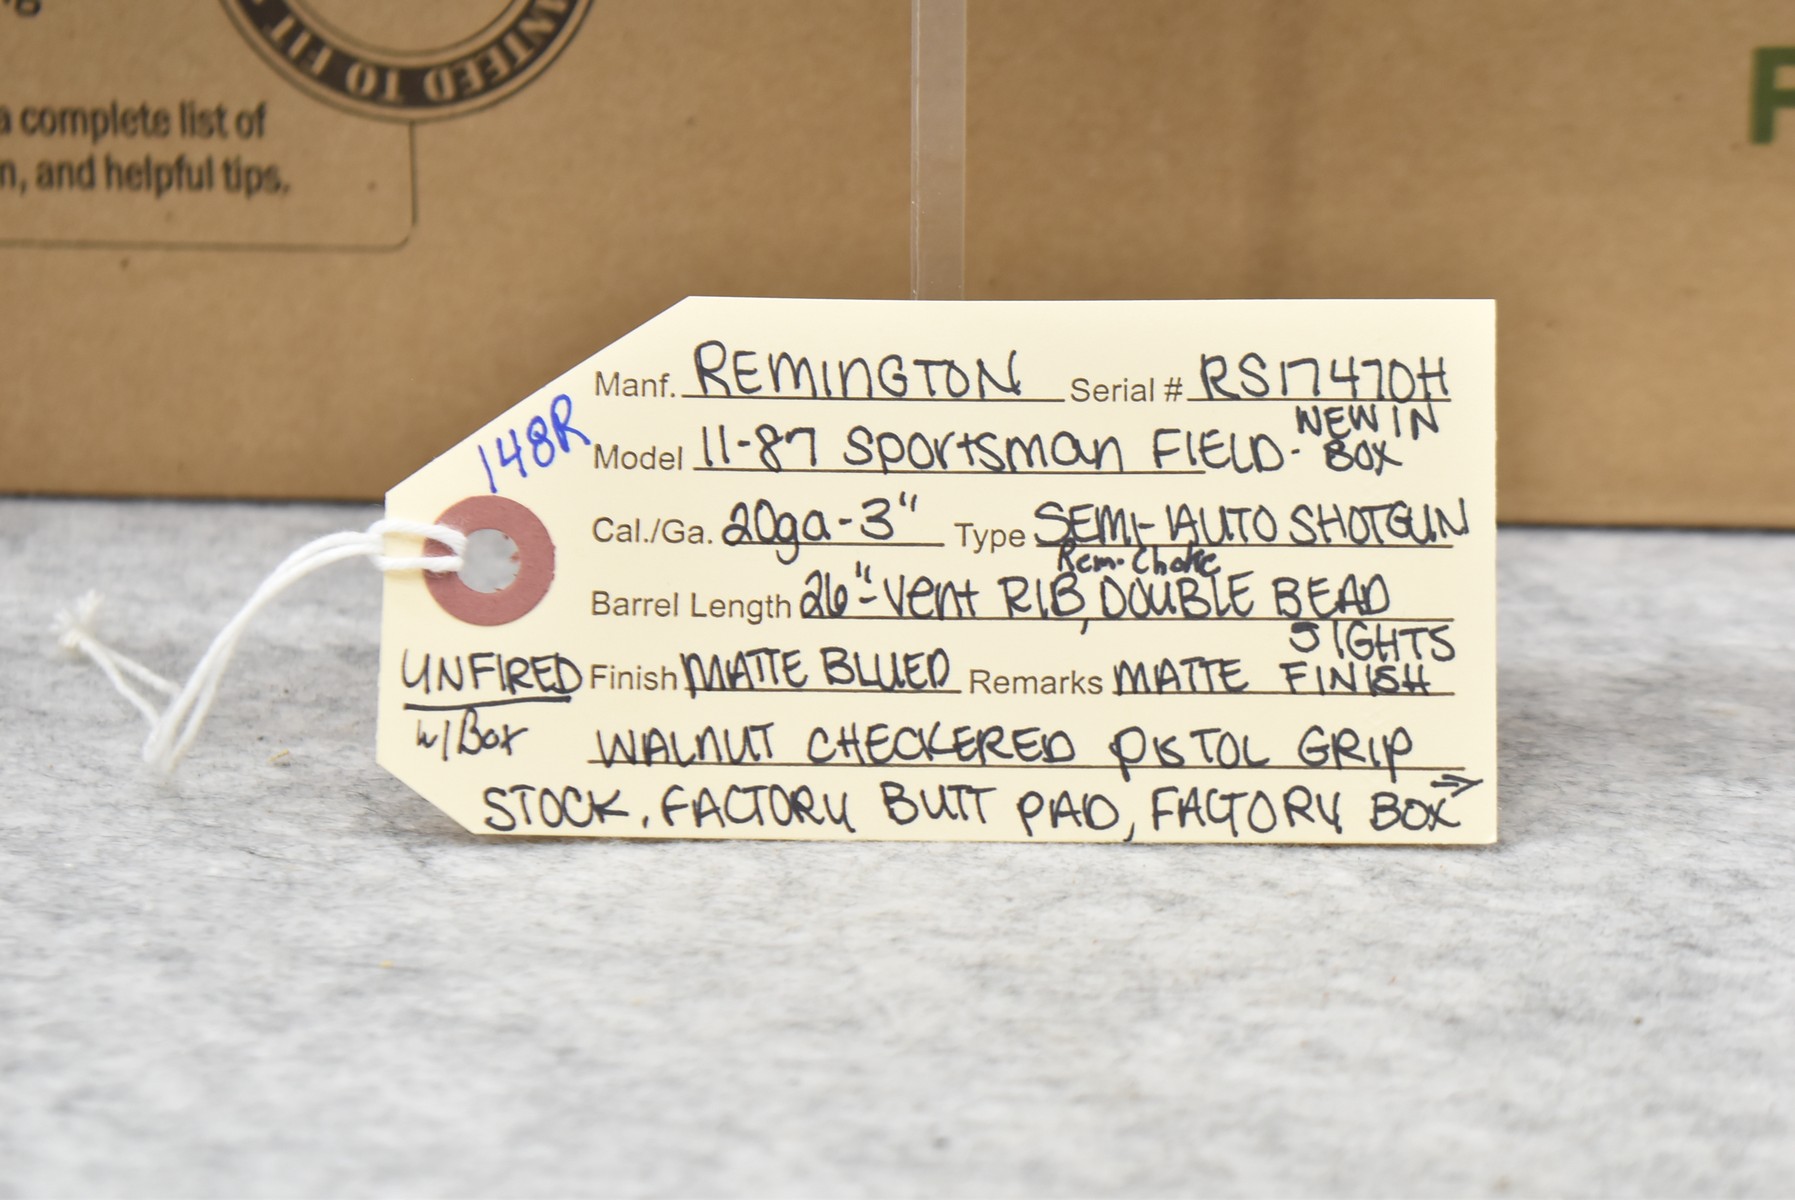 TO FIT
a complete list of
n, and helpful tips.
F
148R
Manf. REMINGTON Serial # RS17470H
Model 11-87 Sportsman FIELD - NEW IN BOX
Cal./Ga. 20ga - 3" Type SEMI-AUTO SHOTGUN
Rem. Choke
Barrel Length 26"- Vent RIB, DOUBLE BEAD
SIGHTS
UNFIRED Finish MATTE BLUED Remarks MATTE FINISH
w/Box WALNUT CHECKERED PISTOL GRIP
STOCK, FACTORY BUTT PAD, FACTORY BOX →